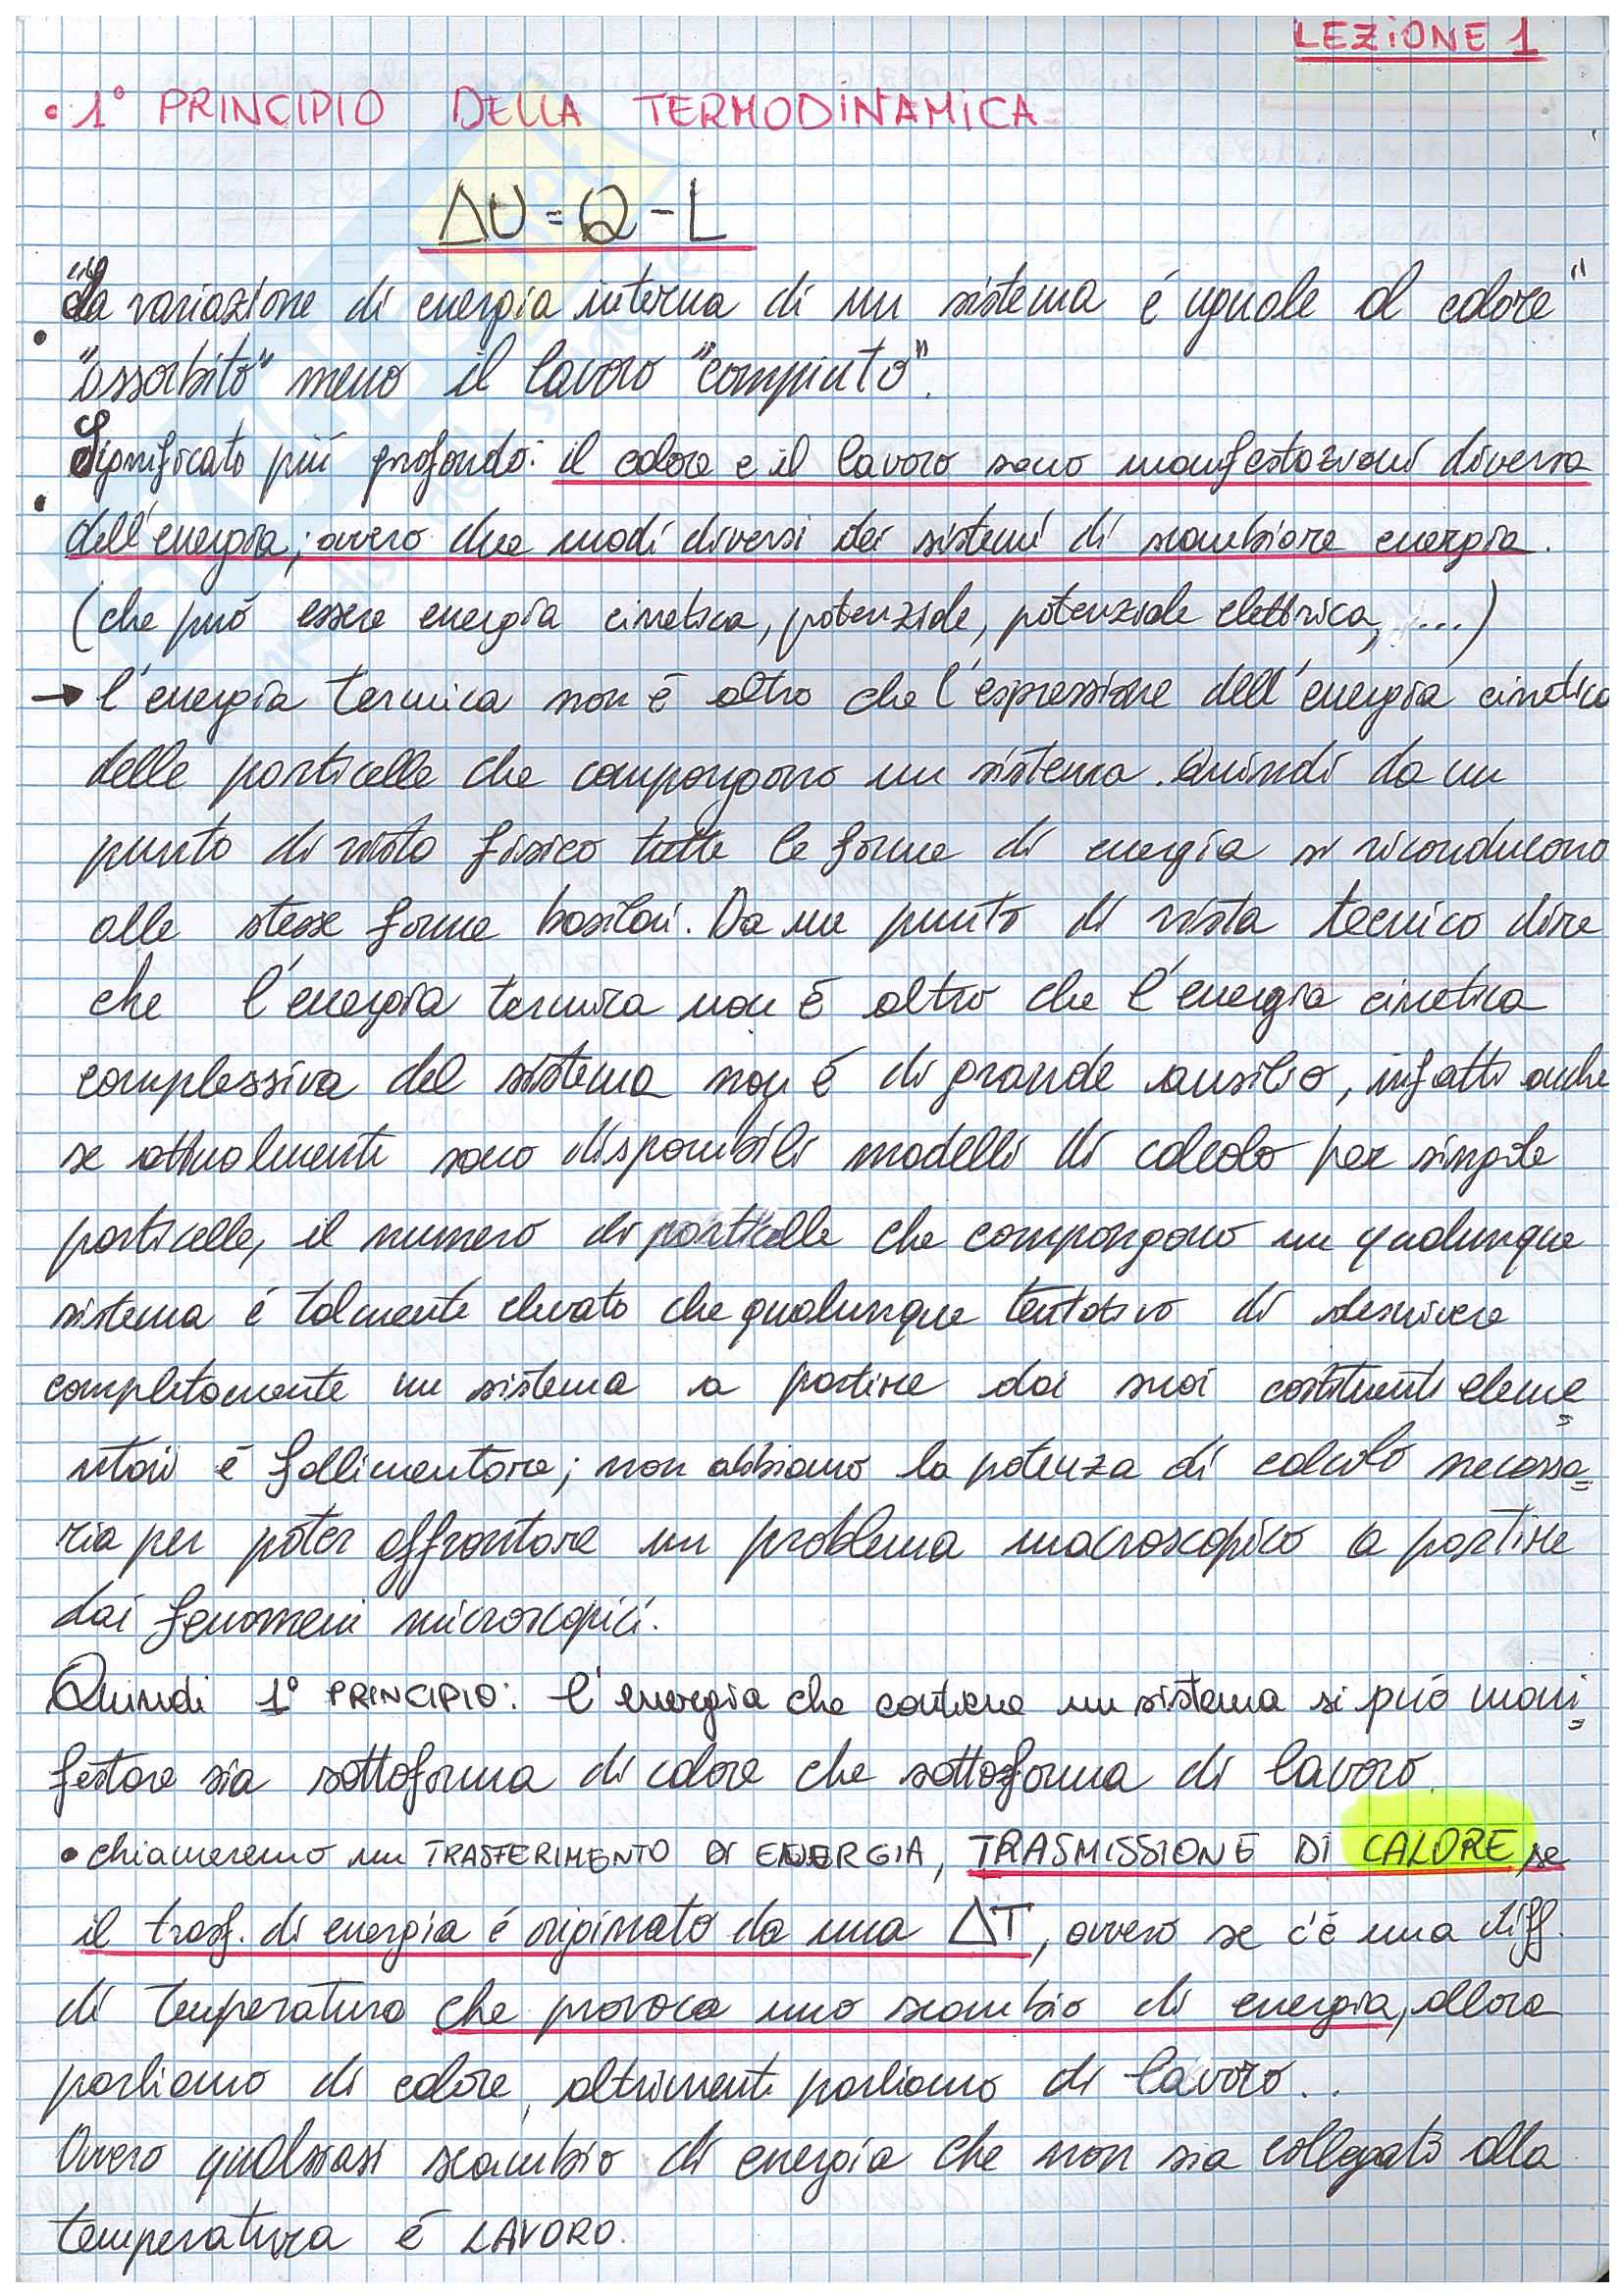 LEZIONE 1
• 1° PRINCIPIO DELLA TERMODINAMICA
ΔU = Q - L
"La variazione di energia interna di un sistema é uguale al calore"
"assorbito" meno il lavoro "compiuto".
Significato piú profondo: il calore e il lavoro sono manifestazioni diverse
dell'energia; ovvero due modi diversi dei sistemi di scambiare energia.
(che puó essere energia cinetica, potenziale, potenziale elettrica, ...)
→ l'energia termica non é altro che l'espressione dell'energia cinetica
delle particelle che compongono un sistema. Quindi da un
punto di vista fisico tutte le forme di energia si riconducono
alle stesse forme basilari. Da un punto di vista tecnico dire
che l'energia termica non é altro che l'energia cinetica
complessiva del sistema non é di grande ausilio, infatti anche
se attualmente sono disponibili modelli di calcolo per singole
particelle, il numero di particelle che compongono un qualunque
sistema é talmente elevato che qualunque tentativo di descrivere
completamente un sistema a partire dai suoi costituenti eleme=
ntari é fallimentare; non abbiamo la potenza di calcolo necessa=
ria per poter affrontare un problema macroscopico a partire
dai fenomeni microscopici.
Quindi 1° PRINCIPIO: l'energia che contiene un sistema si puó mani=
festare sia sottoforma di calore che sottoforma di lavoro.
• chiameremo un TRASFERIMENTO DI ENERGIA, TRASMISSIONE DI CALORE, se
il trasf. di energia é originato da una ΔT, ovvero se c'é una diff.
di temperatura che provoca uno scambio di energia, allora
parliamo di calore, altrimenti parliamo di lavoro..
Ovvero qualsiasi scambio di energia che non sia collegato alla
temperatura é LAVORO.